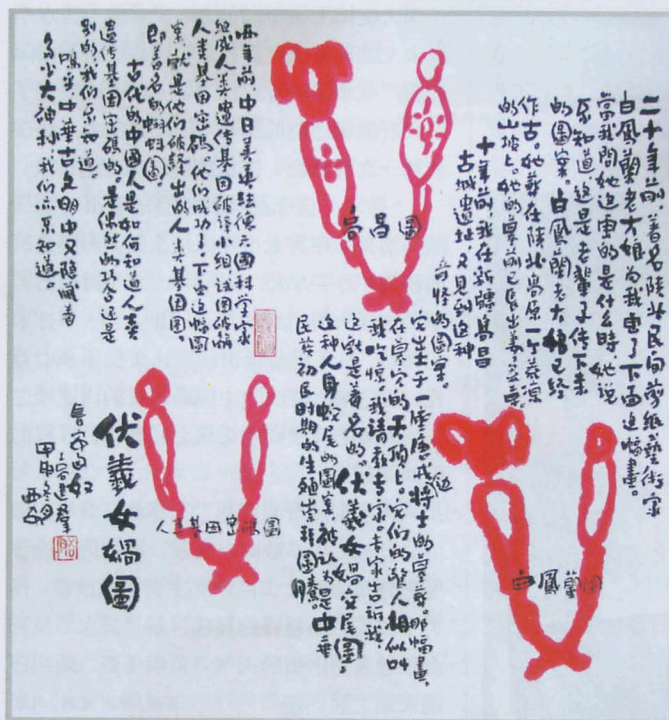 二十年前著名陕北民间剪纸藝術家
白凤蘭老大娘为我画了下面这幅画。
當我問她这画的是什么時她说
不知道这是老輩子传下来
的圖案。白凤蘭老大娘已经
作古。她葬在陕北高原一个荒凉
的山坡上。她的墓前已長出萋萋
十年前我在新疆高昌
古城遺址又見到这种
奇怪的圖案
它出土于一座唐戍边将士的墓葬。那幅画
在墓穴的天頂上。它们的惊人相似叫
我吃惊我請教专家。专家告訴我
这就是著名的伏羲女娲交尾圖。
这种人身蛇尾的圖案被认为是中華
民族初民時期的生殖崇拜圖腾。
高昌圖
白鳳蘭圖
两年前中日美英法德六國科学家
组成人类遺传基因破译小组試图破解
人类基因密碼他们成功了下面这幅圖
案就是他们破译出的人类基因圖
即著名的蝌蚪圖
古代的中國人是如何知道人类
遺传基因密碼的。是偶然的巧合还是
别的我们不知道
嗚呼中華古文明中隐藏着
多少大神秘我们亦不知道
人类基因密碼圖
伏羲女媧圖
長安匹夫
高建群
甲申冬月
西安